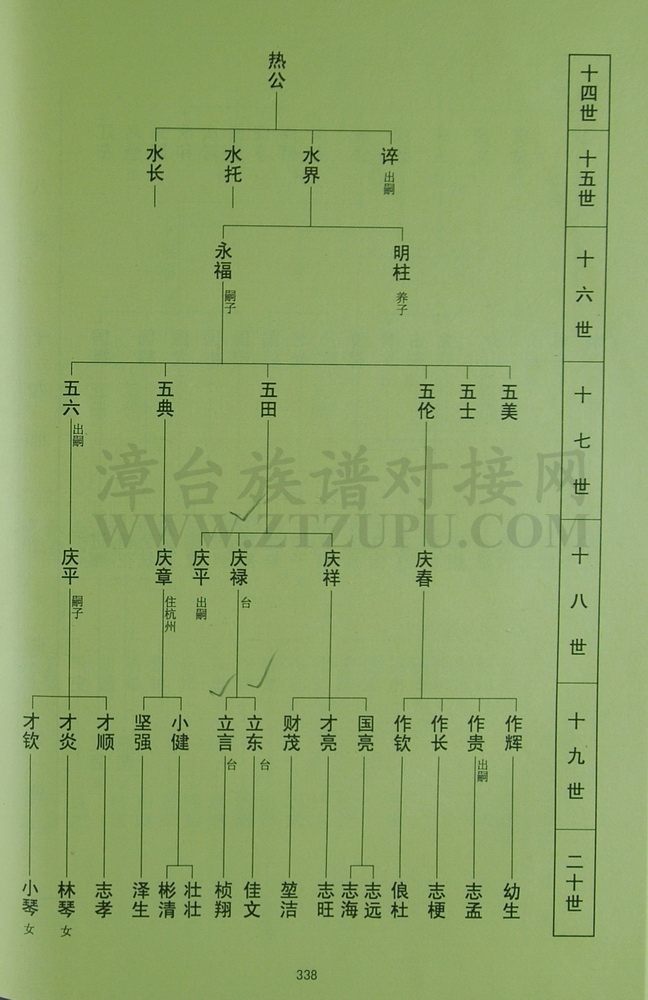 十四世
热公
十五世
谇 出嗣
水界
水托
水长
十六世
明柱 养子
永福 嗣子
十七世
五美
五士
五伦
五田
五典
五六 出嗣
漳台族谱对接网
WWW.ZTZUPU.COM
十八世
庆春
庆祥
庆禄 台
庆平 出嗣
庆章 住杭州
庆平 嗣子
十九世
作辉
作贵 出嗣
作长
作钦
国亮
才亮
财茂
立东 台
立言 台
小健
坚强
才顺
才炎
才钦
二十世
幼生
志孟
志梗
俍杜
志远
志海
志旺
堃洁
佳文
桢翔
壮壮
彬清
泽生
志孝
林琴 女
小琴 女
338